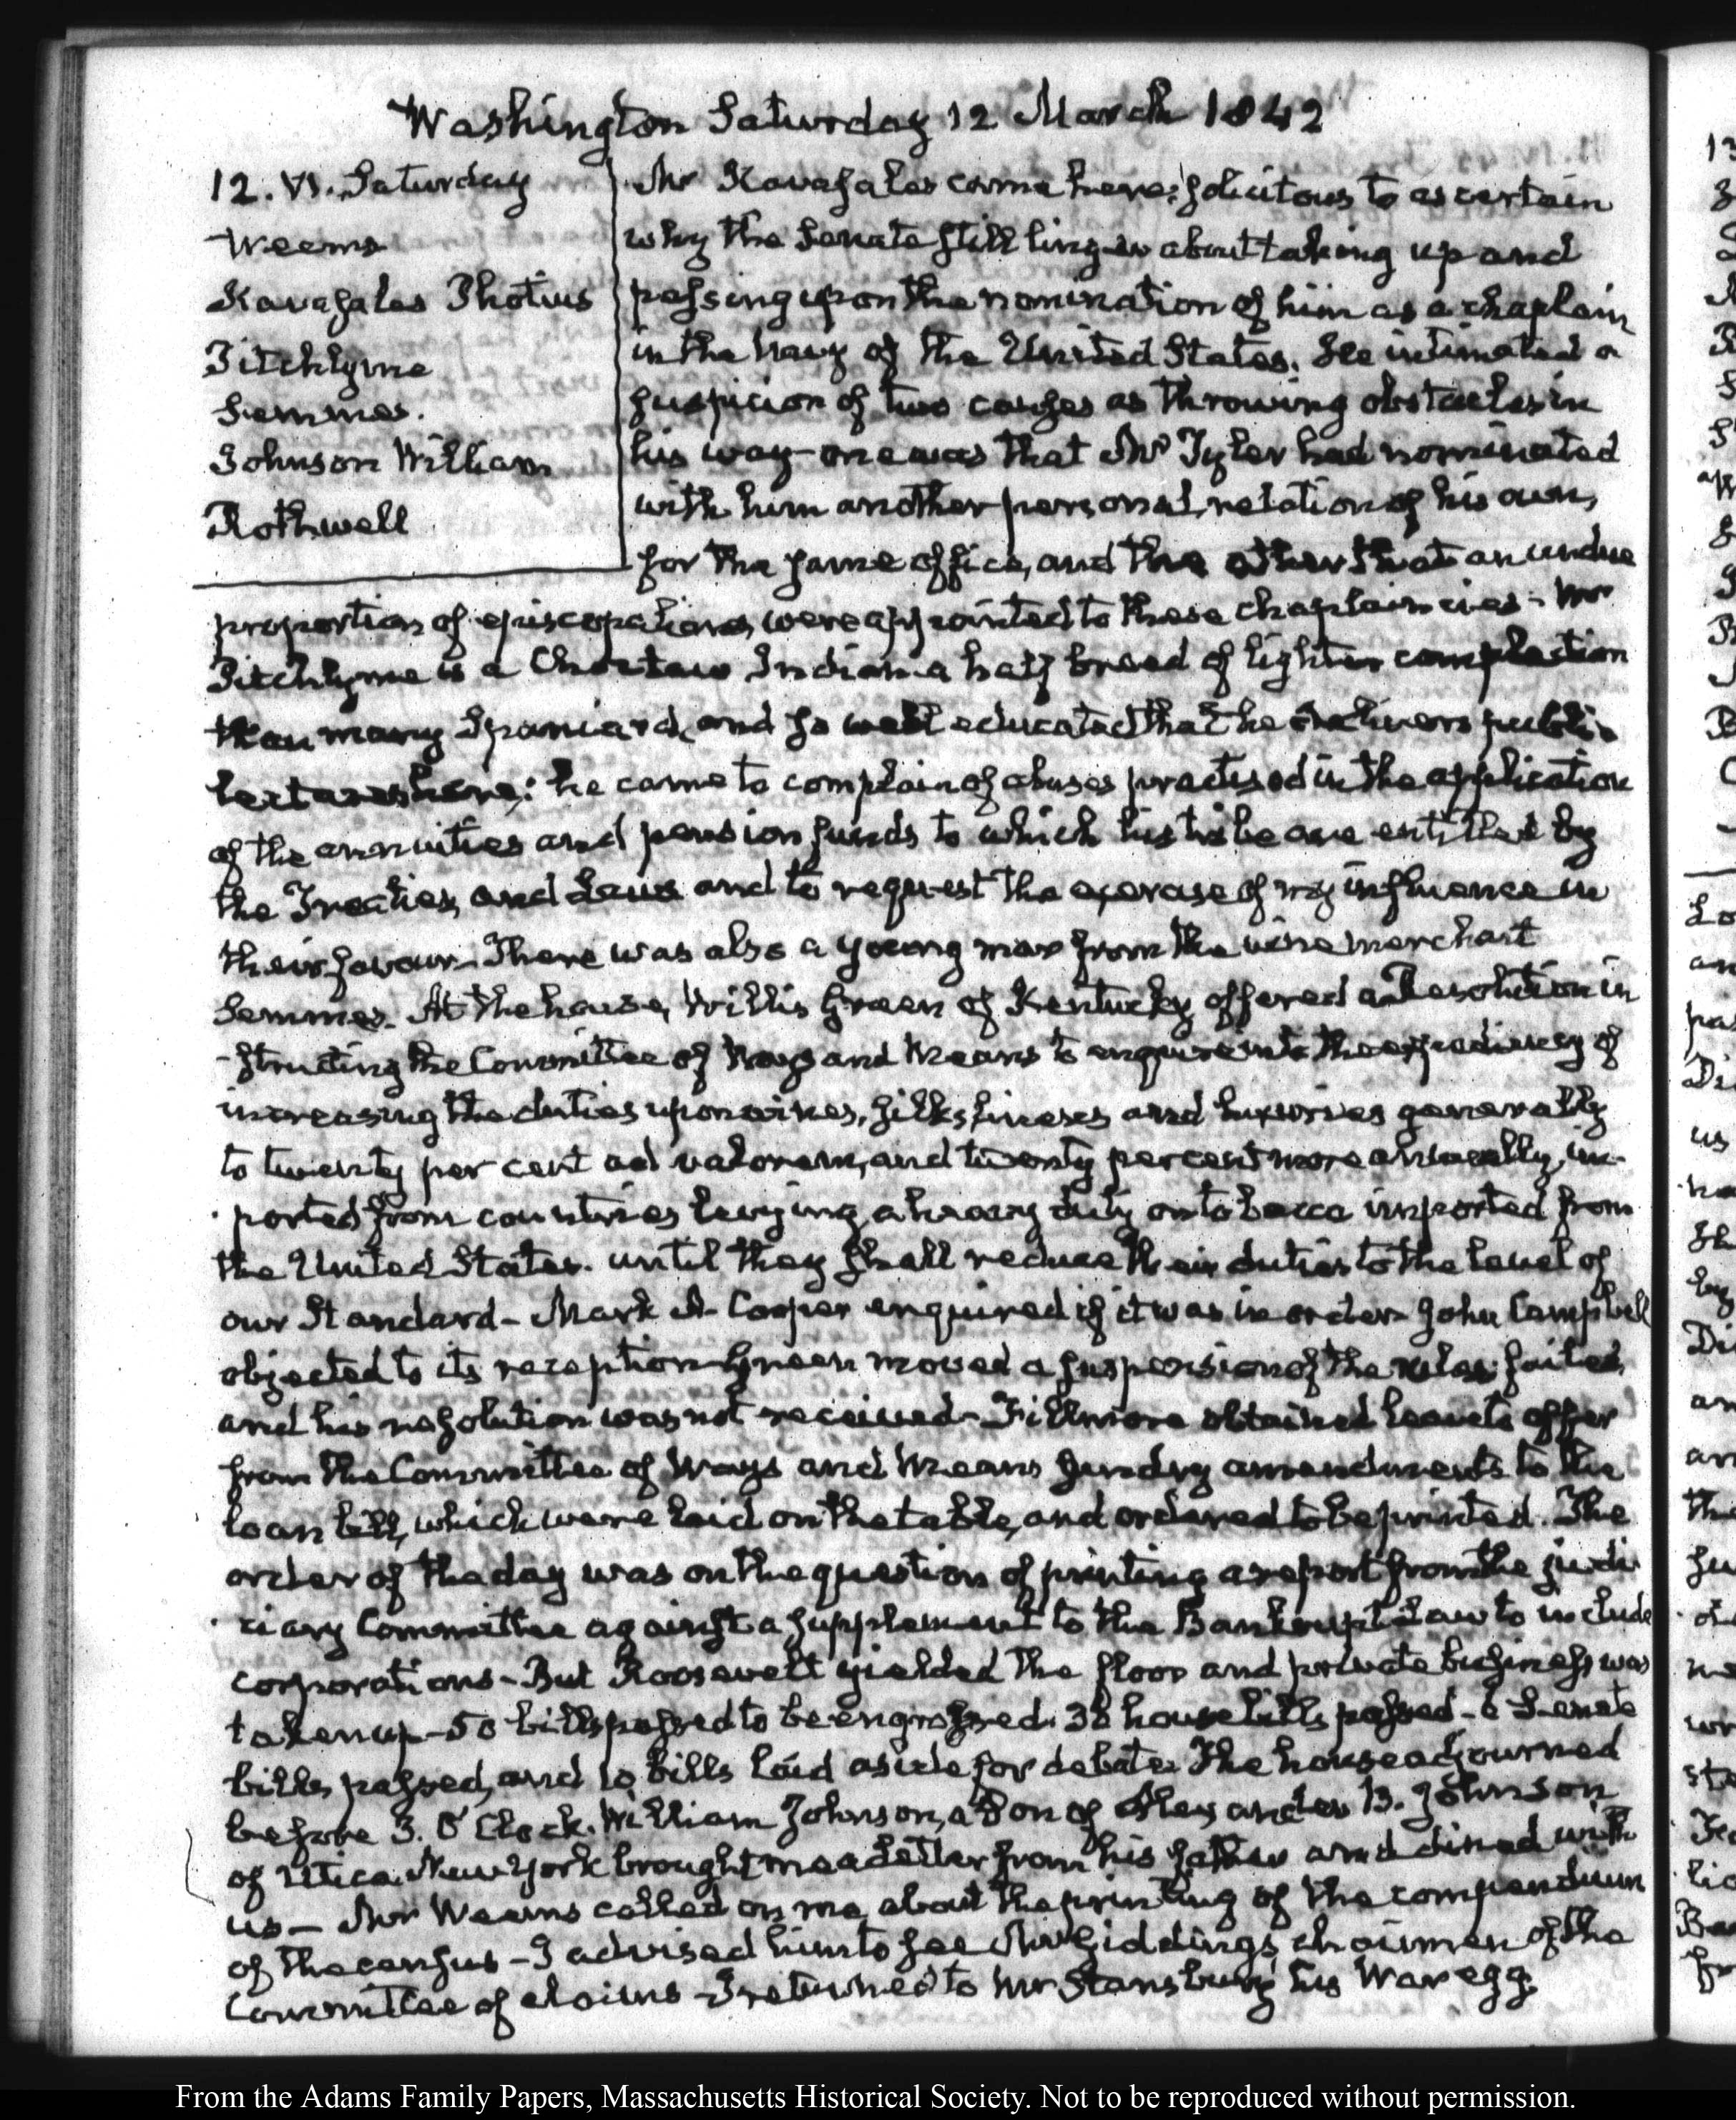 Washington Saturday 12 March 1842
12. VI. Saturday
Weems
Kavasales Photius
Pitchlynne
Semmes.
Johnson William
Rothwell
Mr Kavasales came here; solicitous to ascertain
why the Senate still linger about taking up and
passing upon the nomination of him as a chaplain
in the Navy of the United States. He intimated a
suspicion of two causes as throwing obstacles in
his way—one was that Mr Tyler had nominated
with him another personal relation of his own,
for the same office, and the other that an undue
proportion of episcopalians were appointed to these chaplaincies - Mr
Pitchlynne is a Choctaw Indian a half breed of lighter complection
than many Spaniard, and so well educated that he delivers public
lectures here; he came to complain of abuses practised in the application
of the annuities and pension funds to which his tribe are entitled by
the Treaties, and Laws and to request the exercise of my influence in
their favour—There was also a young man from the wine merchant
Semmes. At the house, Willis Green of Kentucky offered a Resolution in
-structing the Committee of Ways and Means to enquire into the expediency of
increasing the duties upon wines, silks, linens and luxuries generally
to twenty per cent ad valorem, and twenty per cent more annually, im-
ported from countries levying a heavy duty on tobacco imported from
the United States. until they shall reduce their duties to the level of
our Standard - Mark A. Cooper enquired if it was in order - John Campbell
objected to its reception - Green moved a suspension of the rules; failed,
and his resolution was not received - Fillmore obtained leave to offer
from the Committee of Ways and Means sundry amendments to the
loan bill, which were laid on the table, and ordered to be printed. The
order of the day was on the question of printing a report from the judi
ciary Committee against a supplement to the Bankrupt Law to include
corporations - But Roosevelt yielded the floor and private business was
taken up - 50 bills passed to be engrossed. 38 house bills passed - 6 Senate
bills passed, and 10 bills laid aside for debate. The house adjourned
before 3. O'Clock. William Johnson, a Son of Alexander B. Johnson
of Utica New York brought me a Letter from his father and dined with
us — Mr Weems called on me about the printing of the compendium
of the census - I advised him to see Mr Giddings, chairman of the
Committee of claims - I returned to Mr Stansbury his War egg.
From the Adams Family Papers, Massachusetts Historical Society. Not to be reproduced without permission.